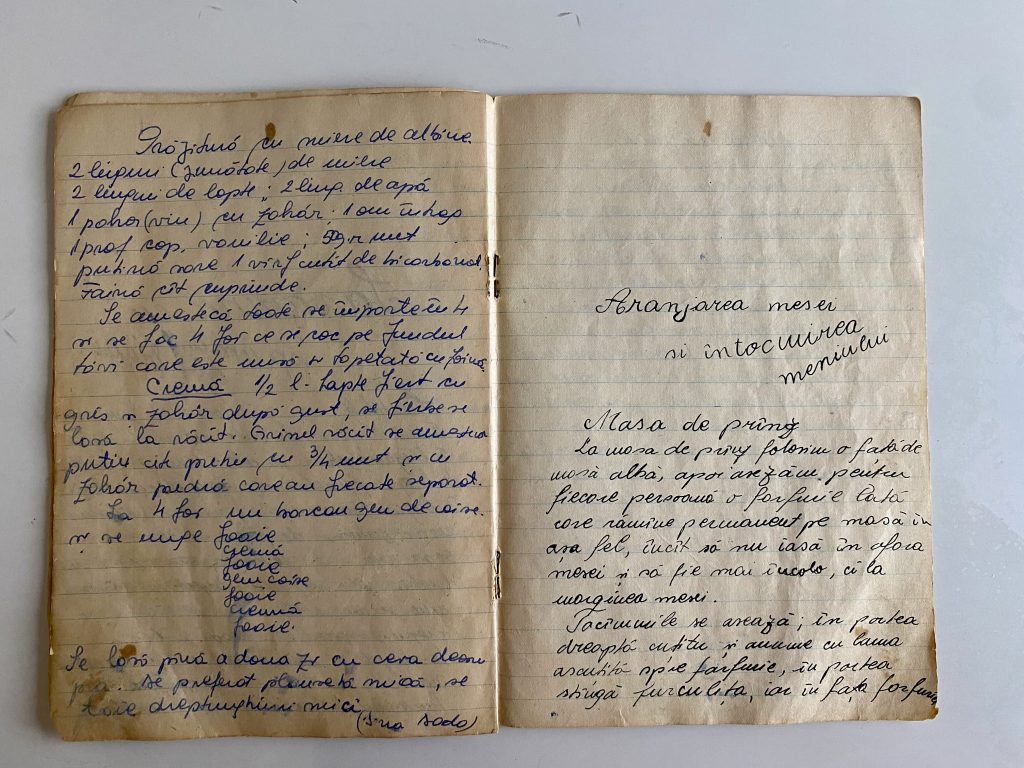 Prăjitură cu miere de albine.
2 linguri (jumătate) de miere
2 linguri de lapte; 2 ling. de apă
1 pahar (vin) cu zahăr. 1 ou întreg
1 praf cop. vanilie; gr. unt
puțină sare 1 vîrf cuțit de bicarbonat.
Făină cît cuprinde.
Se amestecă toate se împarte în 4
și se fac 4 foi ce se coc pe fundul
tăvi care este unsă și tapetată cu făină.
Cremă 1/2 l. lapte fiert cu
gris și zahăr după gust, se fierbe se
lasă la răcit. Grisul răcit se amestecă
puțin cîte puțin cu 3/4 unt și cu
zahăr pudră care au frecate separat.
La 4 foi un borcan gem de caise.
și se unge foaie
cremă
foaie
gem caise
foaie
cremă
foaie.
Se lasă pînă a doua zi cu ceva deasu
pra. De preferat planșetă mică, se
taie dreptunghiuri mici
Aranjarea mesei
si întocmirea
meniului
Masa de prînz
La masa de prînz folosim o față de
masă albă, apoi așezăm pentru
fiecare persoană o farfurie lată
care rămîne permanent pe masă în
așa fel, încît să nu iasă în afara
mesei și să fie mai încolo, ci la
marginea mesei.
Tacîmurile se așează; în partea
dreaptă cuțitu și anume cu lama
ascuțită spre farfurie, în partea
stîngă furculița, iar în fața farfuriei